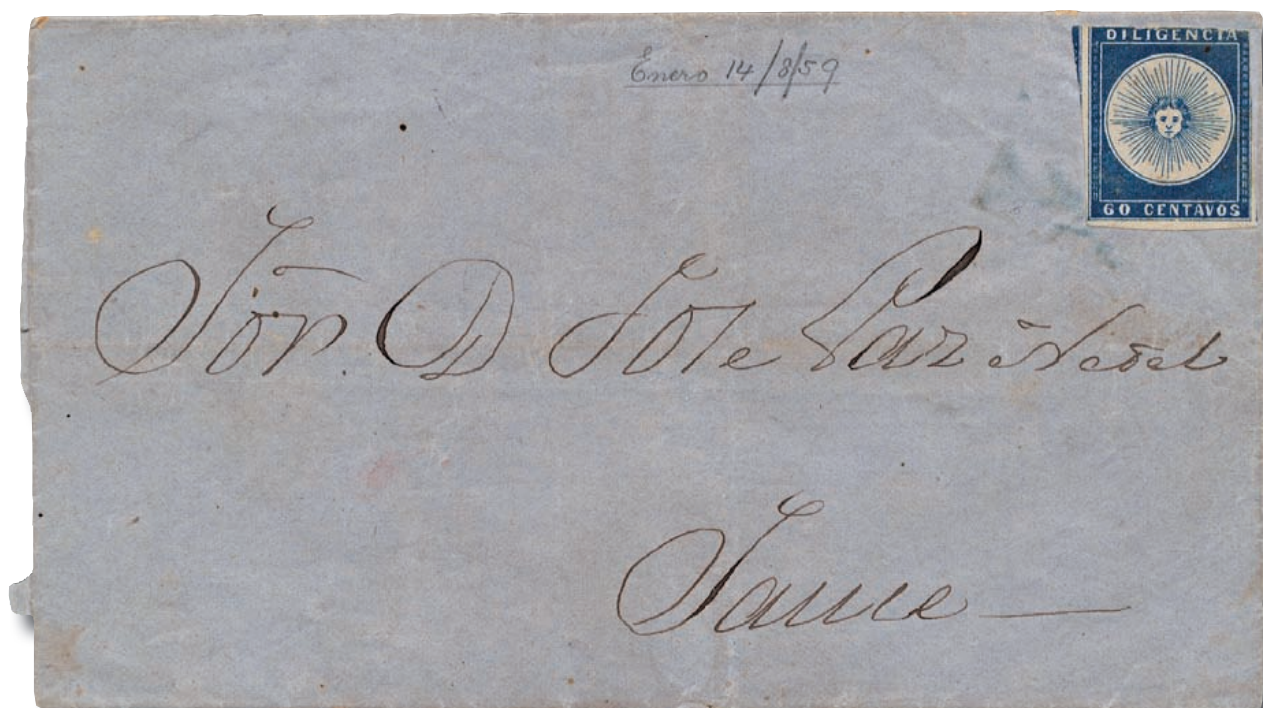 Enero 14/8/59
DILIGENCIA
60 CENTAVOS
Sōr. D Jose Paz
Sauce